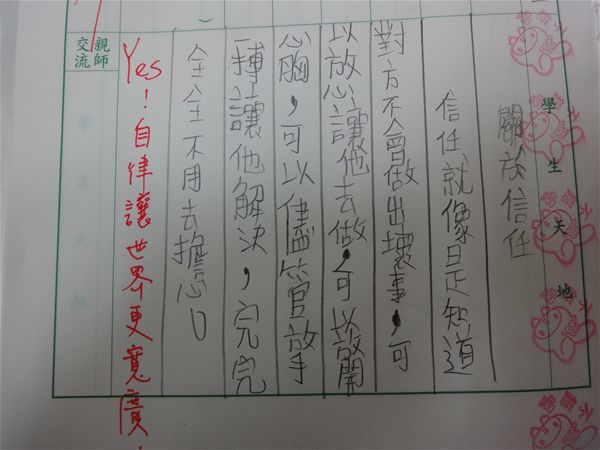 學生天地
關放信任
信任就像是知道
對方不會做出壞事，可
以放心讓他去做，可以放開
心胸，可以儘管放手
一搏讓他解決，完完
全全不用去擔心。
Yes！自律讓世界更寬廣．
親師
交流